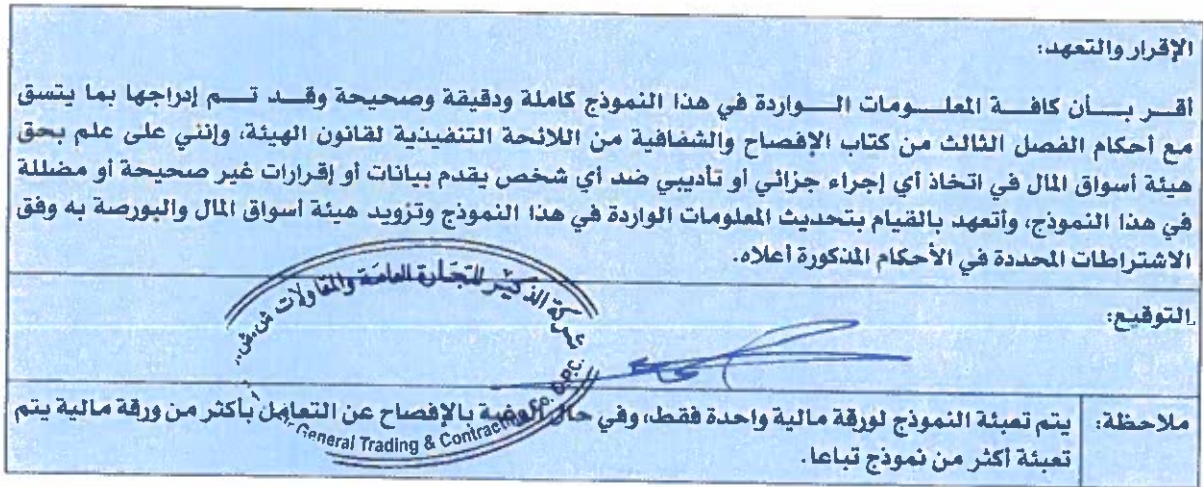 الإقرار والتعهد:
أقر بأن كافة المعلومات الواردة في هذا النموذج كاملة ودقيقة وصحيحة وقد تم إدراجها بما يتسق
مع أحكام الفصل الثالث من كتاب الإفصاح والشفافية من اللائحة التنفيذية لقانون الهيئة، وإنني على علم بحق
هيئة أسواق المال في اتخاذ أي إجراء جزائي أو تأديبي ضد أي شخص يقدم بيانات أو إقرارات غير صحيحة أو مضللة
في هذا النموذج، وأتعهد بالقيام بتحديث المعلومات الواردة في هذا النموذج وتزويد هيئة أسواق المال والبورصة به وفق
الاشتراطات المحددة في الأحكام المذكورة أعلاه.
شركة الذكير للتجارة العامة والمقاولات ش.ش.
General Trading & Contracting Co. O.P.C.
التوقيع:
ملاحظة: يتم تعبئة النموذج لورقة مالية واحدة فقط، وفي حال الرغبة بالإفصاح عن التعامل بأكثر من ورقة مالية يتم
تعبئة أكثر من نموذج تباعا.